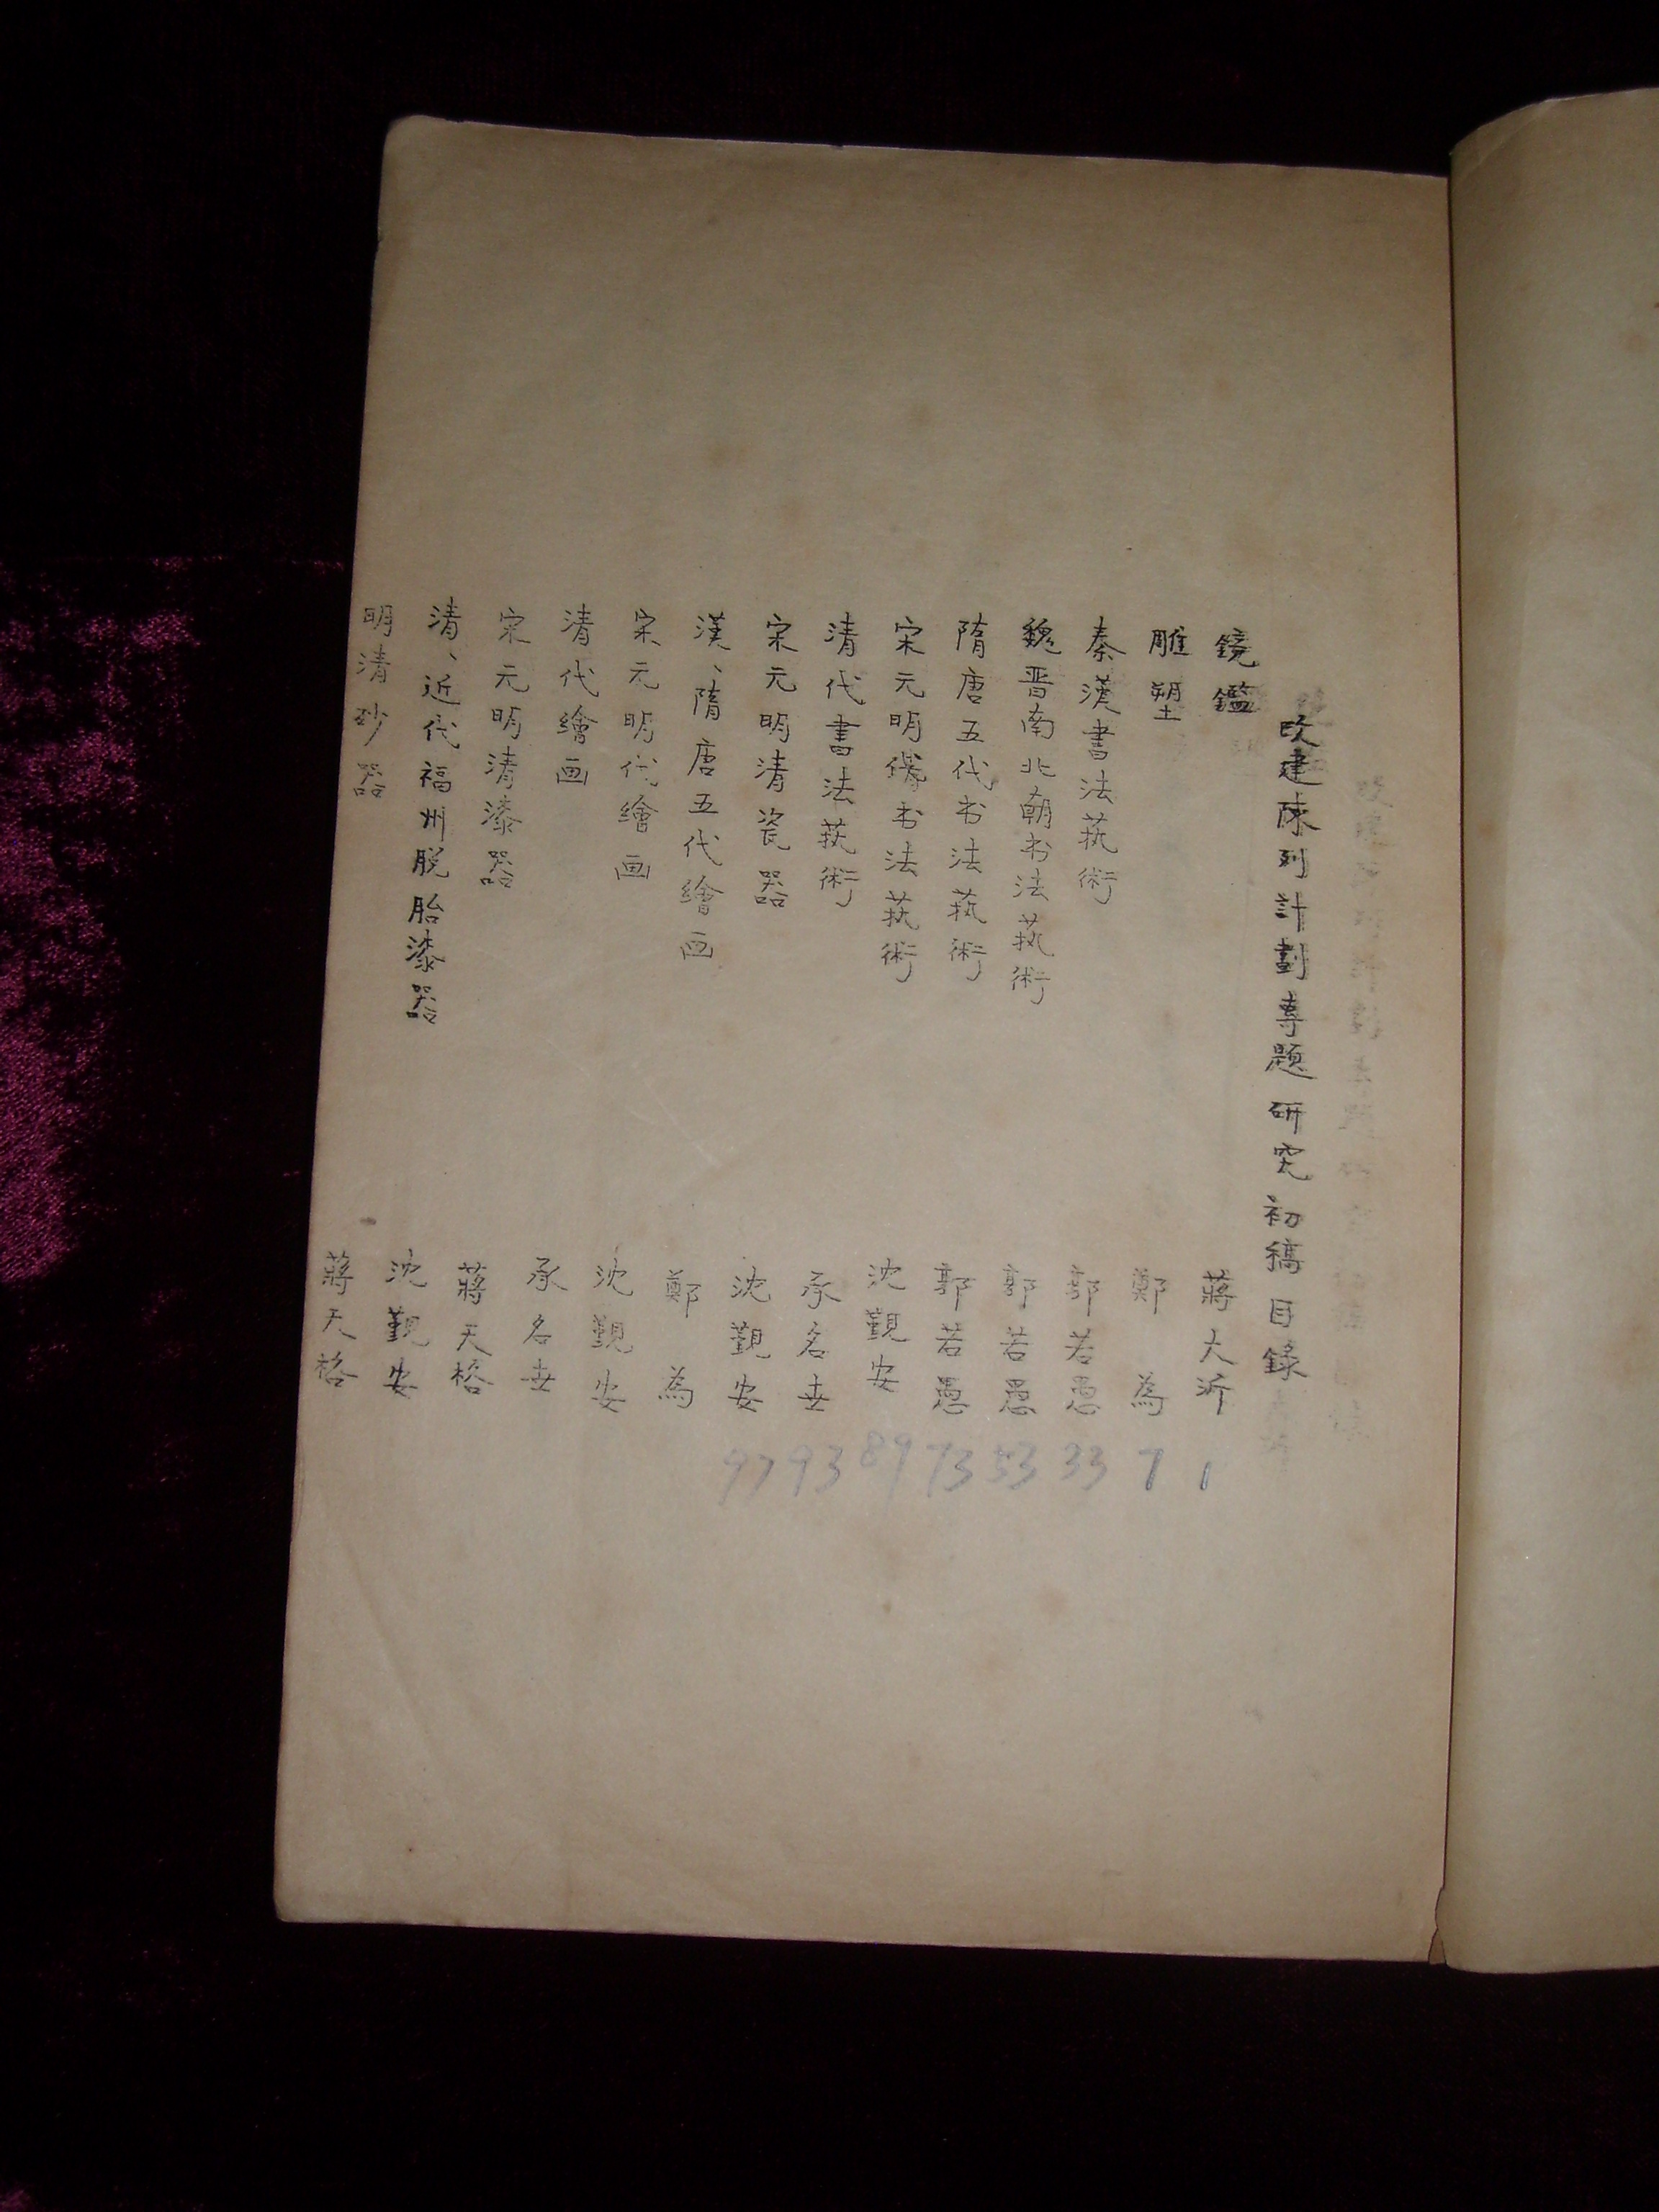 改建陳列計劃專題研究初稿目錄
鏡鑑 蔣大沂 1
雕塑 鄭為 7
秦漢書法藝術 郭若愚 33
魏晋南北朝书法藝術 郭若愚 53
隋唐五代书法藝術 郭若愚 73
宋元明代书法藝術 沈覲安 89
清代書法藝術 承名世 93
宋元明清瓷器 沈覲安 97
漢、隋唐五代繪画 鄭為
宋元明代繪画 沈覲安
清代繪画 承名世
宋元明清漆器 蔣天格
清、近代福州脱胎漆器 沈覲安
明清砂器 蔣天格